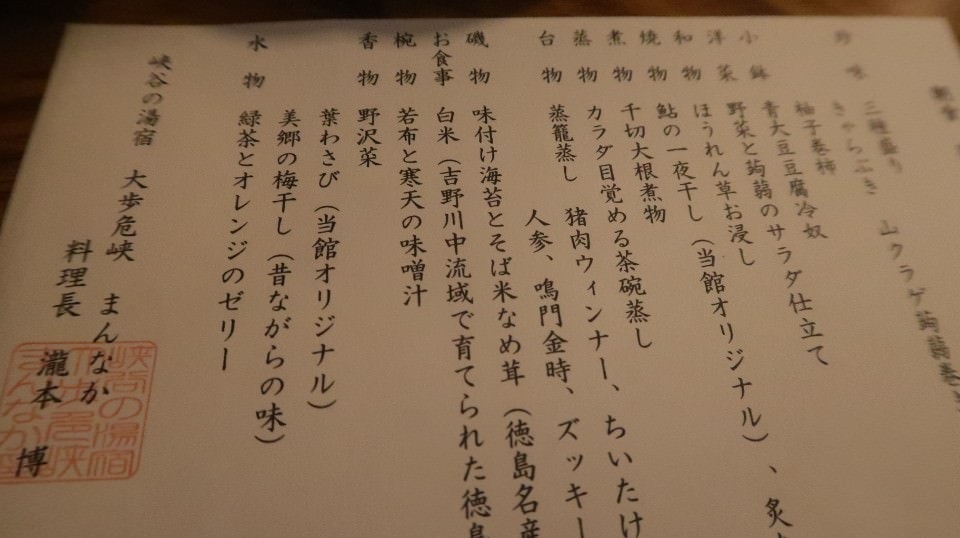 珍味 三種盛り
きゃらぶき 山クラゲ蒟蒻巻
柚子巻柿
小鉢 青大豆豆腐冷奴
洋菜 野菜と蒟蒻のサラダ仕立て
和物 ほうれん草お浸し
焼物 鮎の一夜干し（当館オリジナル）、炙
煮物 千切大根煮物
蒸物 カラダ目覚める茶碗蒸し
台物 蒸籠蒸し 猪肉ウィンナー、ちいたけ
人参、鳴門金時、ズッキー
磯物 味付け海苔とそば米なめ茸（徳島名産
お食事 白米（吉野川中流域で育てられた徳島
椀物 若布と寒天の味噌汁
香物 野沢菜
葉わさび（当館オリジナル）
美郷の梅干し（昔ながらの味）
水物 緑茶とオレンジのゼリー
峡谷の湯宿 大歩危峡 まんなか
料理長 瀧本 博
峡谷の湯宿
大歩危峡
まんなか